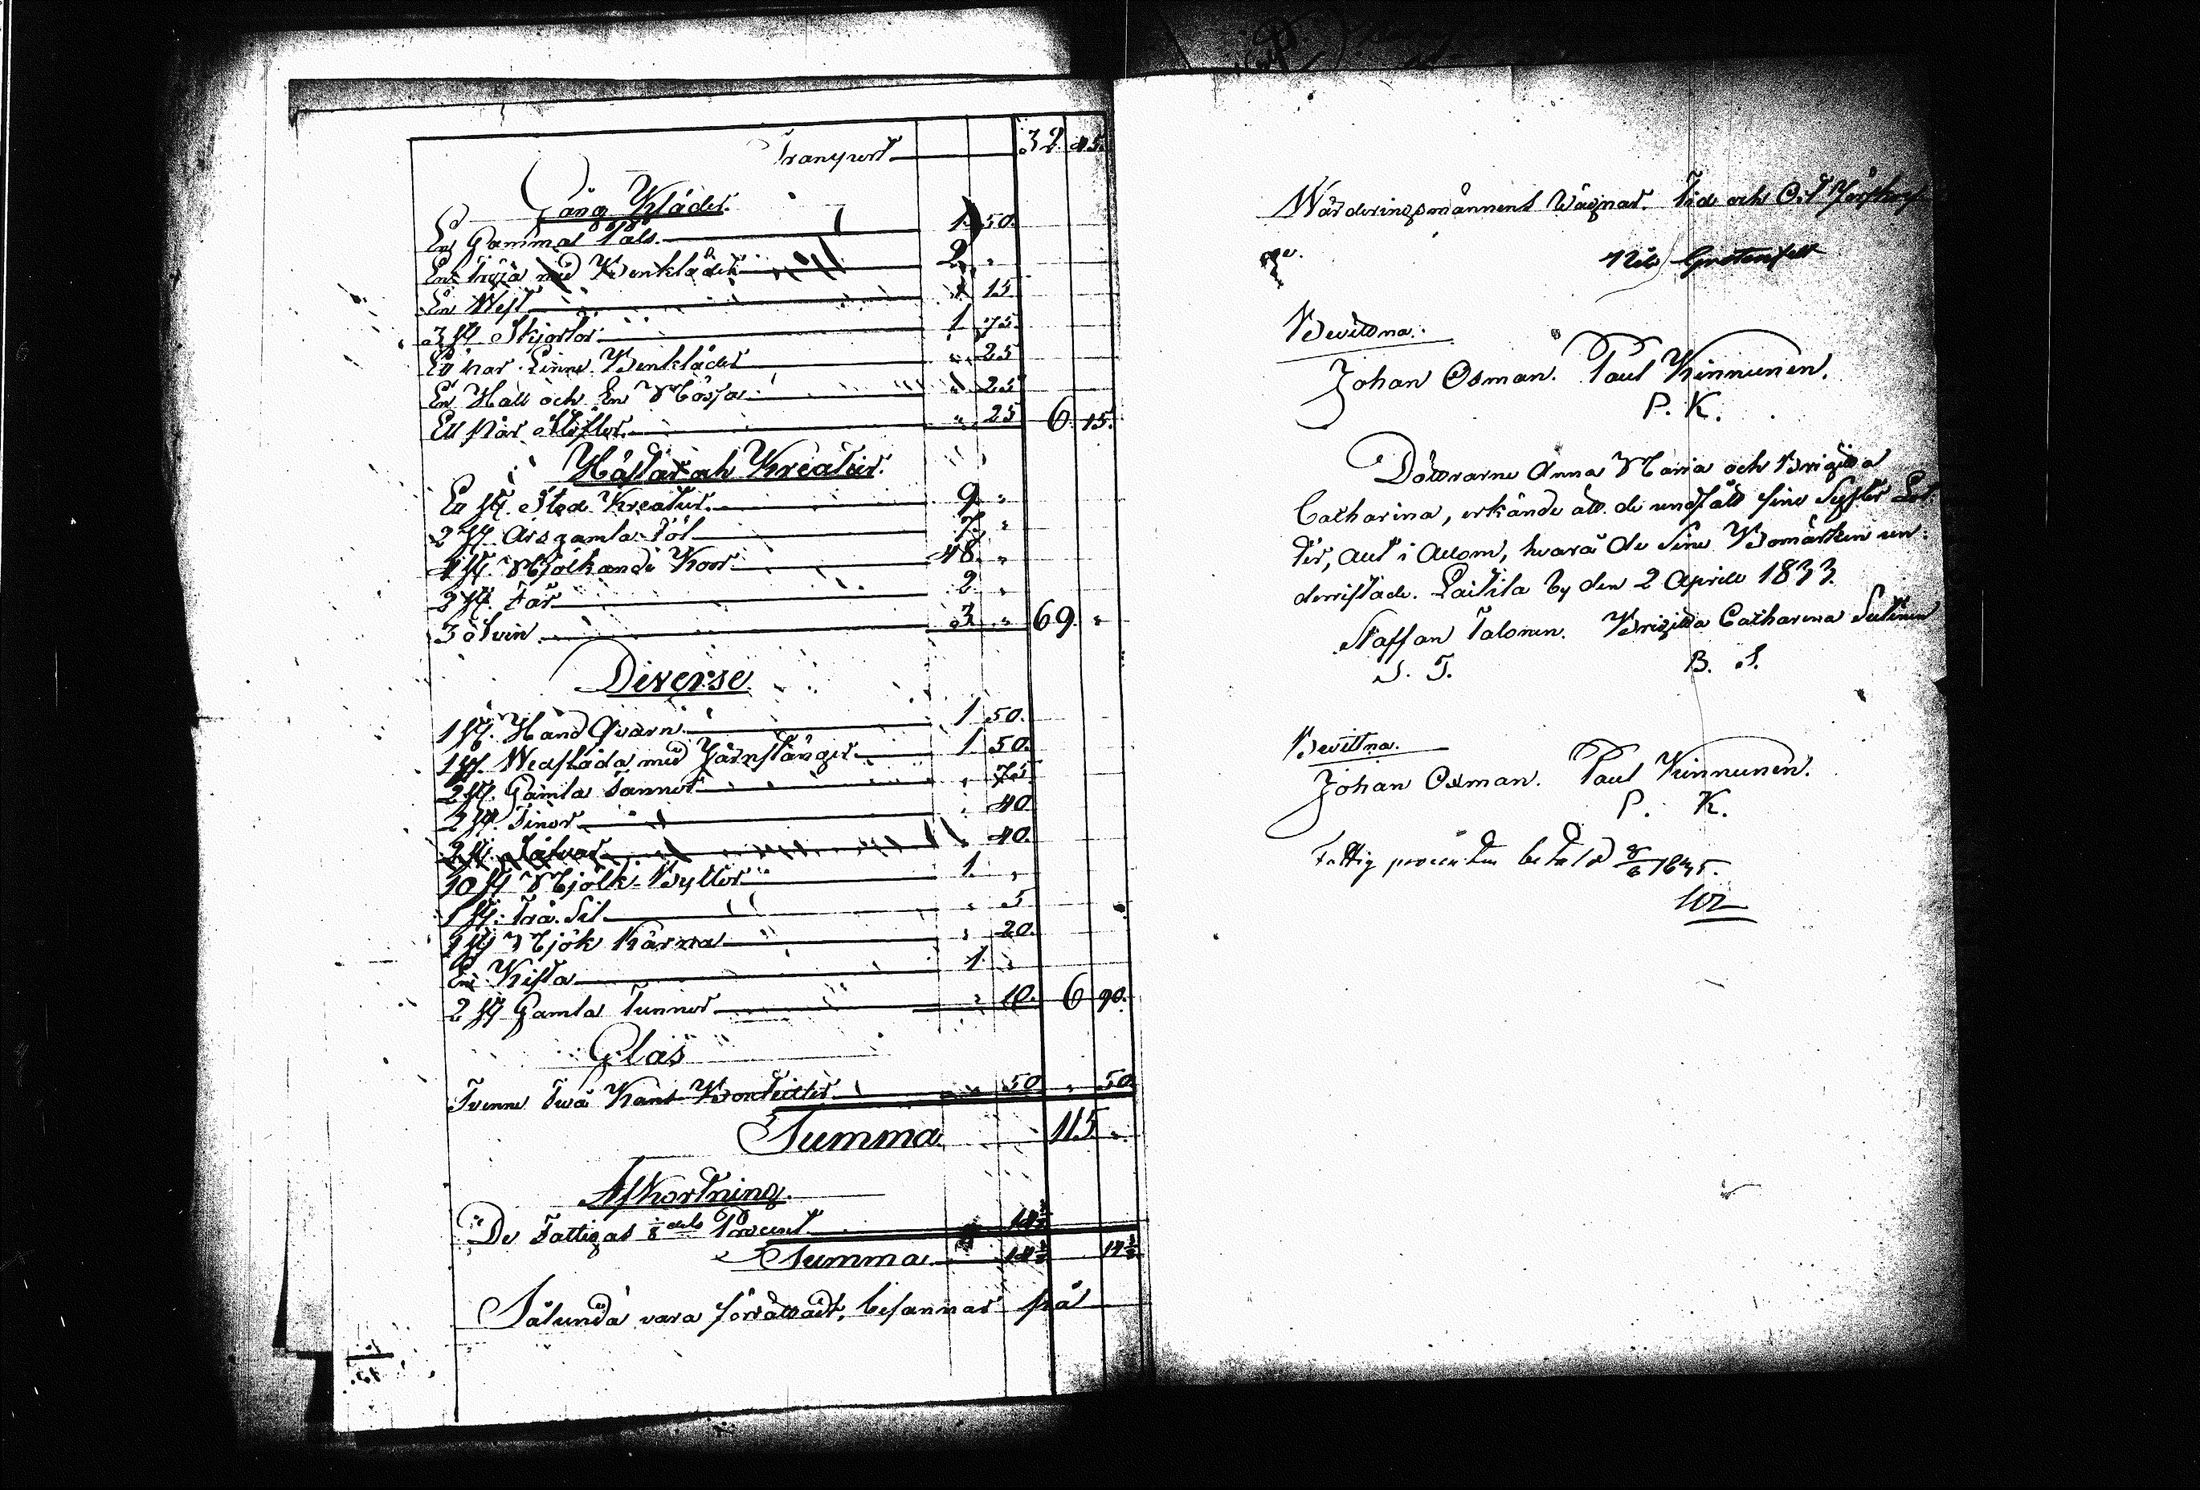 Transport 32 45.
Gång Kläder.
En Gammal Päls 1 50.
En Tröja med Benkläder 2 "
En West " 15
3 st. Skjortor 1 75.
Ett Par Linne Benkläder " 25
En Hatt och En Mössa " 25
Ett Par Stöflor " 25 6. 15.
Hästar och Kreatur.
Ett st. Stod Kreatur 9 "
2 st. Årsgamla Föl 7 "
4 st. Mjölkande Kor 48 "
2 st. Får 2 "
3 Svin 3 " 69. "
Diverse
1 st. Hand Qvarn 1 50.
1 st. Medsläda med Järnstänger 1 50.
2 st. Gamla Tunnor " 75
2 st. Tinor " 40.
2 st. " 40.
10 st Mjölk Byttor 1. "
1 st. Trä Sil " 5
st Mjölk Kärna " 20.
En Kista 1. "
2 st Gamla Tunnor " 10. 6 90.
Glas
Tvenne Två Kants Bouteiller " 50 " 50
Summa 115 "
Afkortning.
De Fattigas 1/8 dels Procent 14 1/2
Summa 14 1/2 14 1/2
Sålunda vara förrättadt, besannar på
Wärderingsmannens Wägnar. Tid och Ort
Nils Grotenfelt
Bevittna.
Johan Osman. Paul Kinnunen.
P. K.
Döttrarne Anna Maria och Brigitta
Catharina, erkände att de undfått sine Syster Lot-
ter, allt i allom, hvarå de sine Bomärken un-
derristade. Laitila by den 2 Aprill 1833.
Staffan Talonen. Brigitta Catharina
S. T. B. S.
Bevittna.
Johan Osman. Paul Kinnunen.
P. K.
Fattig procenten betald 8/6 1835.